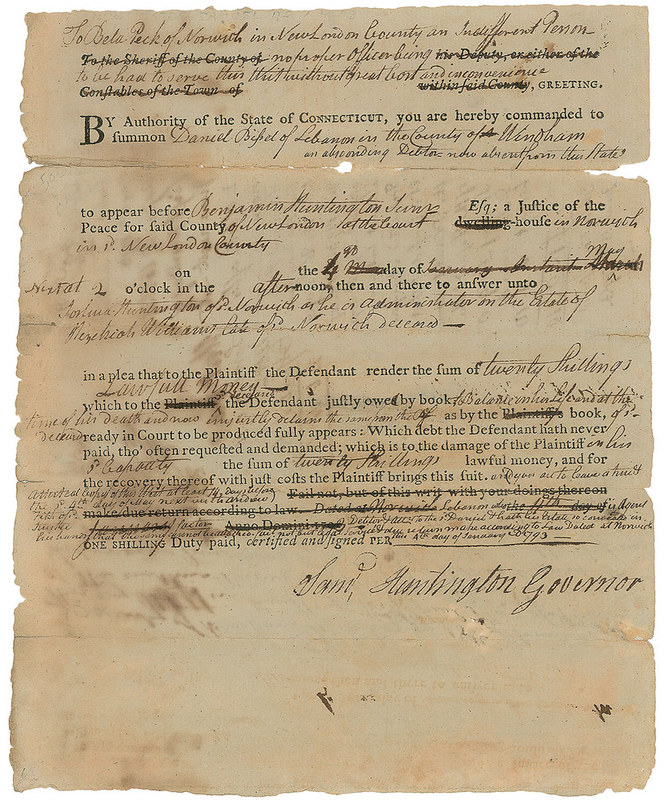 To Bela Peck of Norwich in New London County an Indifferent Person
To the Sheriff of the County of no proper Officer being his Deputy, or either of the
to be had to serve this Writ without great Cost and inconvenience
Constables of the Town of within said County, GREETING.
BY Authority of the State of CONNECTICUT, you are hereby commanded to
summon Daniel Bissel of Lebanon in the County of Windham
an absconding Debtor now absent from this State
to appear before Benjamin Huntington Junr Esq; a Justice of the
Peace for said County of New London at the dwelling-house in Norwich
in sd. New London County
on the 4 day of May
Next at 2 o'clock in the afternoon, then and there to answer unto
Joshua Huntington of sd. Norwich as he is Administrator on the Estate of
Hezekiah Williams late of sd. Norwich deceased
in a plea that to the Plaintiff the Defendant render the sum of twenty Shillings
Lawfull Money
which to the Plaintiff sd. deceased the Defendant justly owed by book to Balance in his life and at the
time of his death and now unjustly detains the same from the as by the Plaintiff's book, of sd.
deceasd ready in Court to be produced fully appears: Which debt the Defendant hath never
paid, tho' often requested and demanded; which is to the damage of the Plaintiff in his
sd. Capacity the sum of twenty Shillings lawful money, and for
the recovery thereof with just costs the Plaintiff brings this suit. and you are to leave a true &
Attested Copy of this Writ at least 14 Days before Fail not, but of this writ with your doings thereon
the sd. 4th day of May next in
make due return according to law. Dated at Norwich Lebanon the day of is Agent
Trustee factor Anno Domini 179 or Debtor
his hands fail not but of this writ and your doings return make according to Law Dated at Norwich
this 4th day of January AD 1793
ONE SHILLING Duty paid, certified and signed PER
Saml. Huntington Governor